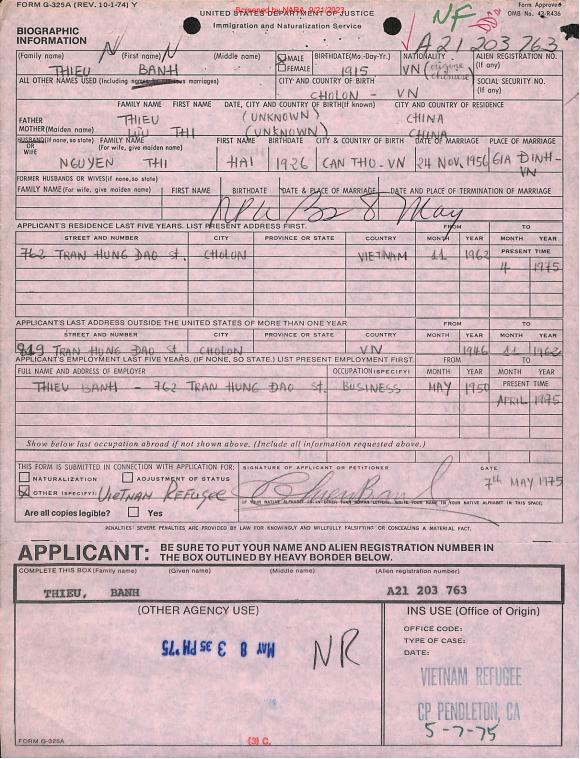 FORM G-325A (REV. 10-1-74) Y
Screened by NARA, 9/21/2023
UNITED STATES DEPARTMENT OF JUSTICE
Immigration and Naturalization Service
NF
Form Approved
OMB No. 43-R436
BIOGRAPHIC
INFORMATION
A21 203 763
(Family name) (First name) (Middle name) MALE FEMALE BIRTHDATE(Mo.-Day-Yr.) NATIONALITY ALIEN REGISTRATION NO. (If any)
THIEU BANH 1915 VN (origine chinese)
ALL OTHER NAMES USED (Including names by previous marriages) CITY AND COUNTRY OF BIRTH SOCIAL SECURITY NO. (If any)
CHOLON - VN
FAMILY NAME FIRST NAME DATE, CITY AND COUNTRY OF BIRTH(If known) CITY AND COUNTRY OF RESIDENCE
FATHER THIEU (UNKNOWN) CHINA
MOTHER(Maiden name) THI (UNKNOWN) CHINA
HUSBAND(If none, so state) OR WIFE FAMILY NAME (For wife, give maiden name) FIRST NAME BIRTHDATE CITY & COUNTRY OF BIRTH DATE OF MARRIAGE PLACE OF MARRIAGE
NGUYEN THI HAI 1926 CAN THO-VN 24 NOV. 1956 GIA DINH-VN
FORMER HUSBANDS OR WIVES(if none, so state)
FAMILY NAME (For wife, give maiden name) FIRST NAME BIRTHDATE DATE & PLACE OF MARRIAGE DATE AND PLACE OF TERMINATION OF MARRIAGE
8 May
APPLICANT'S RESIDENCE LAST FIVE YEARS. LIST PRESENT ADDRESS FIRST. FROM TO
STREET AND NUMBER CITY PROVINCE OR STATE COUNTRY MONTH YEAR MONTH YEAR
762 TRAN HUNG DAO St. CHOLON VIETNAM 11 1962 PRESENT TIME
4 1975
APPLICANT'S LAST ADDRESS OUTSIDE THE UNITED STATES OF MORE THAN ONE YEAR FROM TO
STREET AND NUMBER CITY PROVINCE OR STATE COUNTRY MONTH YEAR MONTH YEAR
819 TRAN HUNG DAO St. CHOLON VN 1946 11 1962
APPLICANT'S EMPLOYMENT LAST FIVE YEARS. (IF NONE, SO STATE.) LIST PRESENT EMPLOYMENT FIRST. FROM TO
FULL NAME AND ADDRESS OF EMPLOYER OCCUPATION(SPECIFY) MONTH YEAR MONTH YEAR
THIEU BANH - 762 TRAN HUNG DAO St. BUSINESS MAY 1950 PRESENT TIME
APRIL 1975
Show below last occupation abroad if not shown above. (Include all information requested above.)
THIS FORM IS SUBMITTED IN CONNECTION WITH APPLICATION FOR: SIGNATURE OF APPLICANT OR PETITIONER DATE
NATURALIZATION ADJUSTMENT OF STATUS 7th MAY 1975
OTHER (SPECIFY): VIETNAM REFUGEE
IF YOUR NATIVE ALPHABET IS IN OTHER THAN ROMAN LETTERS, WRITE YOUR NAME IN YOUR NATIVE ALPHABET IN THIS SPACE:
Are all copies legible? Yes
PENALTIES: SEVERE PENALTIES ARE PROVIDED BY LAW FOR KNOWINGLY AND WILLFULLY FALSIFYING OR CONCEALING A MATERIAL FACT.
APPLICANT: BE SURE TO PUT YOUR NAME AND ALIEN REGISTRATION NUMBER IN
THE BOX OUTLINED BY HEAVY BORDER BELOW.
COMPLETE THIS BOX (Family name) (Given name) (Middle name) (Alien registration number)
THIEU, BANH A21 203 763
(OTHER AGENCY USE) INS USE (Office of Origin)
MAY 8 3 35 PM '75
NR
OFFICE CODE:
TYPE OF CASE:
DATE:
VIETNAM REFUGEE
CP PENDLETON, CA
5-7-75
FORM G-325A
(3) C.